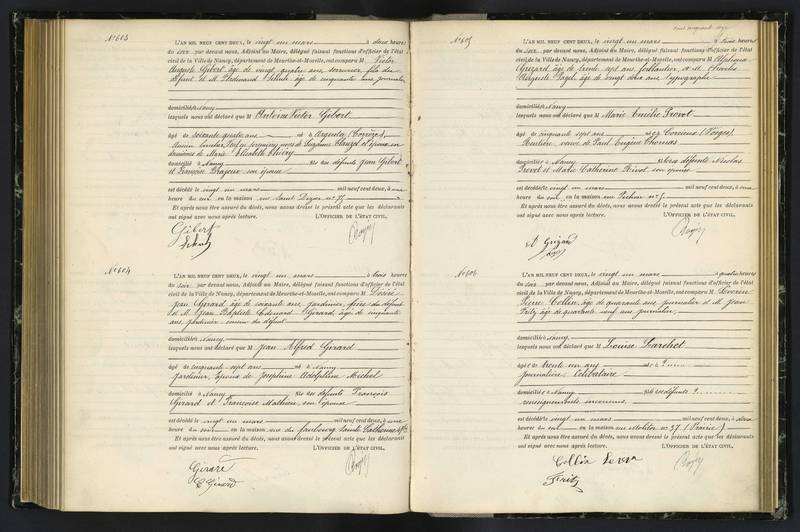 N° 603
L'AN MIL NEUF CENT DEUX, le vingt un mars à deux heures
du soir par devant nous, Adjoint au Maire, délégué faisant fonctions d'officier de l'état
civil de la Ville de Nancy, département de Meurthe-et-Moselle, ont comparu M Victor
Auguste Gibert âgé de vingt quatre ans, serrurier, fils du
défunt et M. Ferdinand âgé de cinquante ans journalier
domiciliés à Nancy
lesquels nous ont déclaré que M Antoine Victor Gibert
âgé de soixante quatre ans né à Argentat (Corrèze),
en premières noces de Suzanne et époux en
deuxièmes de Marie Elisabeth Thiéry
domicilié à Nancy fils des défunts Jean Gibert
et François son épouse
est décédé le vingt un mars mil neuf cent deux, à une
heure du soir en la maison rue Saint Dizier n° 75
Et après nous être assuré du décès, nous avons dressé le présent acte que les déclarants
ont signé avec nous après lecture. L'OFFICIER DE L'ÉTAT CIVIL,
Gibert
N° 604
L'AN MIL NEUF CENT DEUX, le vingt un mars à trois heures
du soir par devant nous, Adjoint au Maire, délégué faisant fonctions d'officier de l'état
civil de la Ville de Nancy, département de Meurthe-et-Moselle, ont comparu M Désiré
Jean Gérard, âgé de soixante ans, jardinier, frère du défunt
et M. Jean Baptiste Edouard Gérard, âgé de cinquante
ans, jardinier, cousin du défunt
domiciliés à Nancy
lesquels nous ont déclaré que M Jean Alfred Gérard
âgé de cinquante sept ans né à Nancy
jardinier, époux de Joséphine Adolphine Michel
domicilié à Nancy fils des défunts François
Gérard et Françoise Mathieu, son épouse
est décédé le vingt un mars mil neuf cent deux, à une
heure du soir en la maison rue du faubourg Sainte Catherine
Et après nous être assuré du décès, nous avons dressé le présent acte que les déclarants
ont signé avec nous après lecture. L'OFFICIER DE L'ÉTAT CIVIL,
Gérard
E Gérard
N° 605
L'AN MIL NEUF CENT DEUX, le vingt un mars à trois heures
du soir par devant nous, Adjoint au Maire, délégué faisant fonctions d'officier de l'état
civil de la Ville de Nancy, département de Meurthe-et-Moselle, ont comparu M Alphonse
âgé de trente sept ans, ferblantier, et M. Charles
Auguste âgé de vingt deux ans typographe
domiciliés à Nancy
lesquels nous ont déclaré que M Marie Emilie Prevot
âgée de cinquante sept ans née à Corcieux (Vosges),
Rentière, veuve de Paul Eugène Thomas
domiciliée à Nancy fille des défunts Nicolas
Prevot et Marie Catherine son épouse
est décédée le vingt un mars mil neuf cent deux, à une
heure du soir en la maison rue Pichon n° 5
Et après nous être assuré du décès, nous avons dressé le présent acte que les déclarants
ont signé avec nous après lecture. L'OFFICIER DE L'ÉTAT CIVIL,
N° 606
L'AN MIL NEUF CENT DEUX, le vingt un mars à quatre heures
du soir par devant nous, Adjoint au Maire, délégué faisant fonctions d'officier de l'état
civil de la Ville de Nancy, département de Meurthe-et-Moselle, ont comparu M
Pierre Collin, âgé de quarante ans, journalier et M. Jean
Fritz âgé de quarante neuf ans journalier
domiciliés à Nancy
lesquels nous ont déclaré que M Louise Larchet
âgée de trente un ans née à ?
journalière, Célibataire
domiciliée à Nancy fille des défunts ?
renseignements inconnus
est décédée le vingt un mars mil neuf cent deux, à deux
heures du soir en la maison rue Molitor n° 37 (Prairie)
Et après nous être assuré du décès, nous avons dressé le présent acte que les déclarants
ont signé avec nous après lecture. L'OFFICIER DE L'ÉTAT CIVIL,
Collin
Fritz